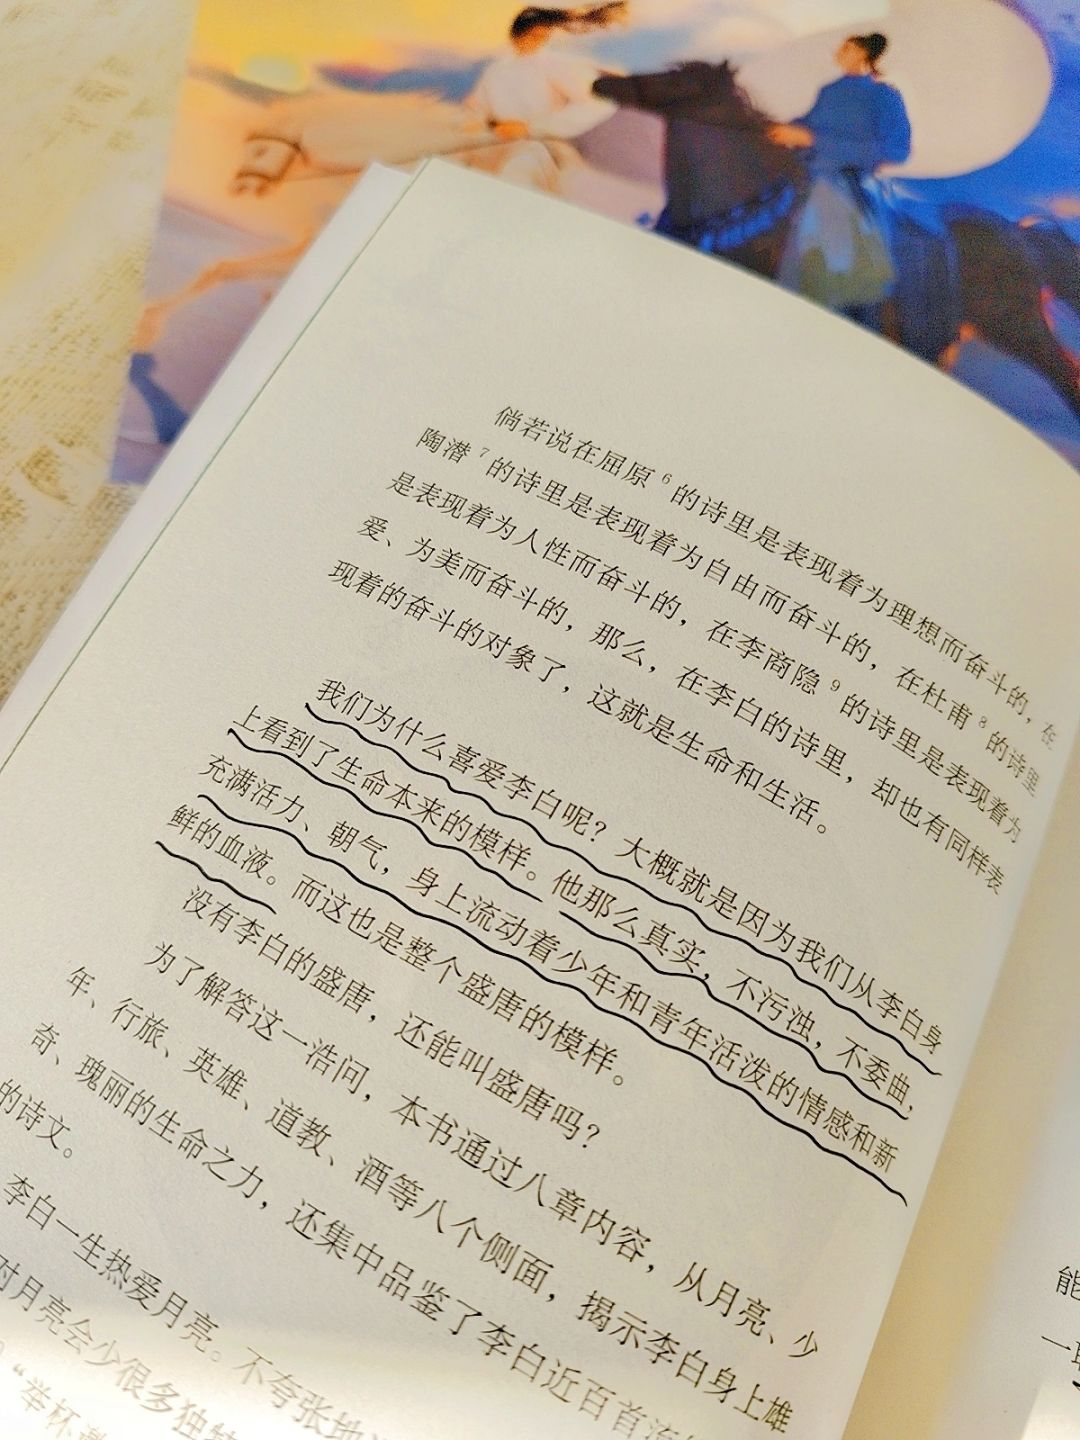 倘若说在屈原⁶的诗里是表现着为理想而奋斗的，在
陶潜⁷的诗里是表现着为自由而奋斗的，在杜甫⁸的诗里
是表现着为人性而奋斗的，在李商隐⁹的诗里是表现着为
爱、为美而奋斗的，那么，在李白的诗里，却也有同样表
现着的奋斗的对象了，这就是生命和生活。
我们为什么喜爱李白呢？大概就是因为我们从李白身
上看到了生命本来的模样。他那么真实，不污浊，不委曲，
充满活力、朝气，身上流动着少年和青年活泼的情感和新
鲜的血液。而这也是整个盛唐的模样。
没有李白的盛唐，还能叫盛唐吗？
为了解答这一浩问，本书通过八章内容，从月亮、少
年、行旅、英雄、道教、酒等八个侧面，揭示李白身上雄
奇、瑰丽的生命之力，还集中品鉴了李白近百首流
的诗文。
李白一生热爱月亮。不夸张地
对月亮会少很多独特
“举杯邀
能
一